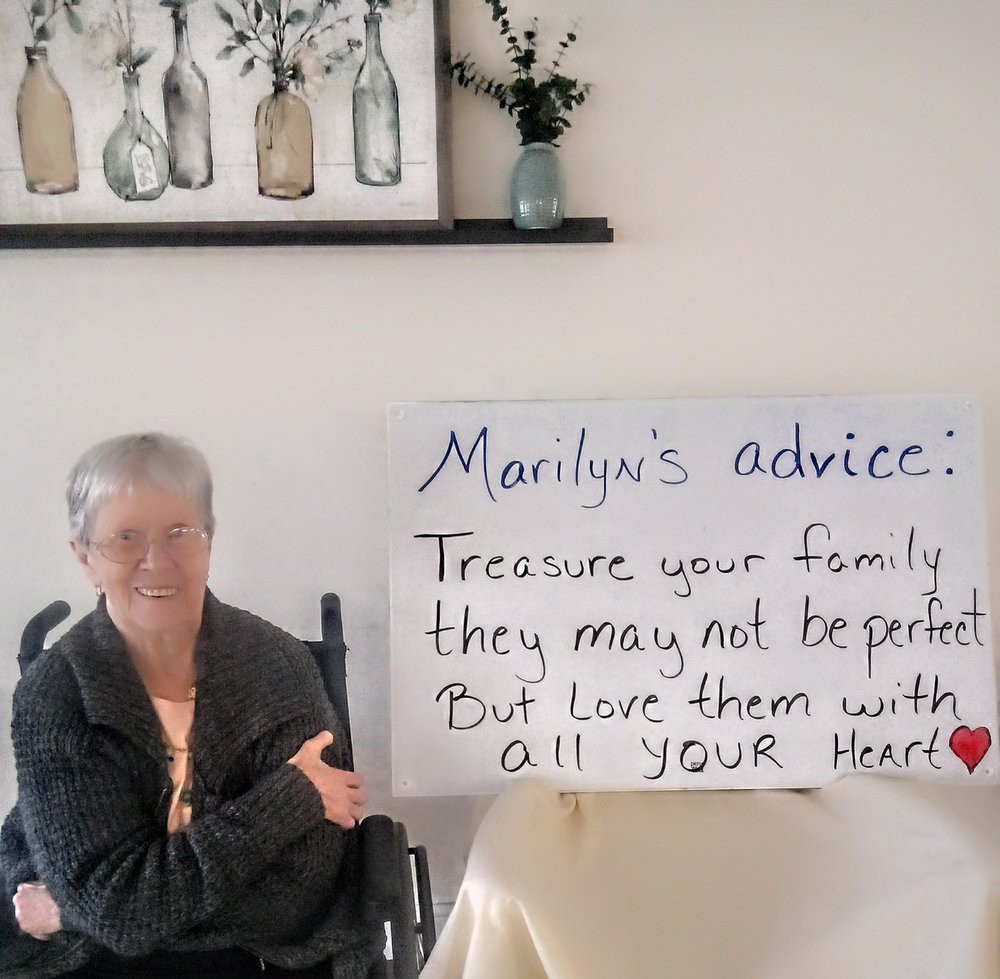 Marilyn's advice:
Treasure your family
they may not be perfect
But Love them with
all YOUR HeArt